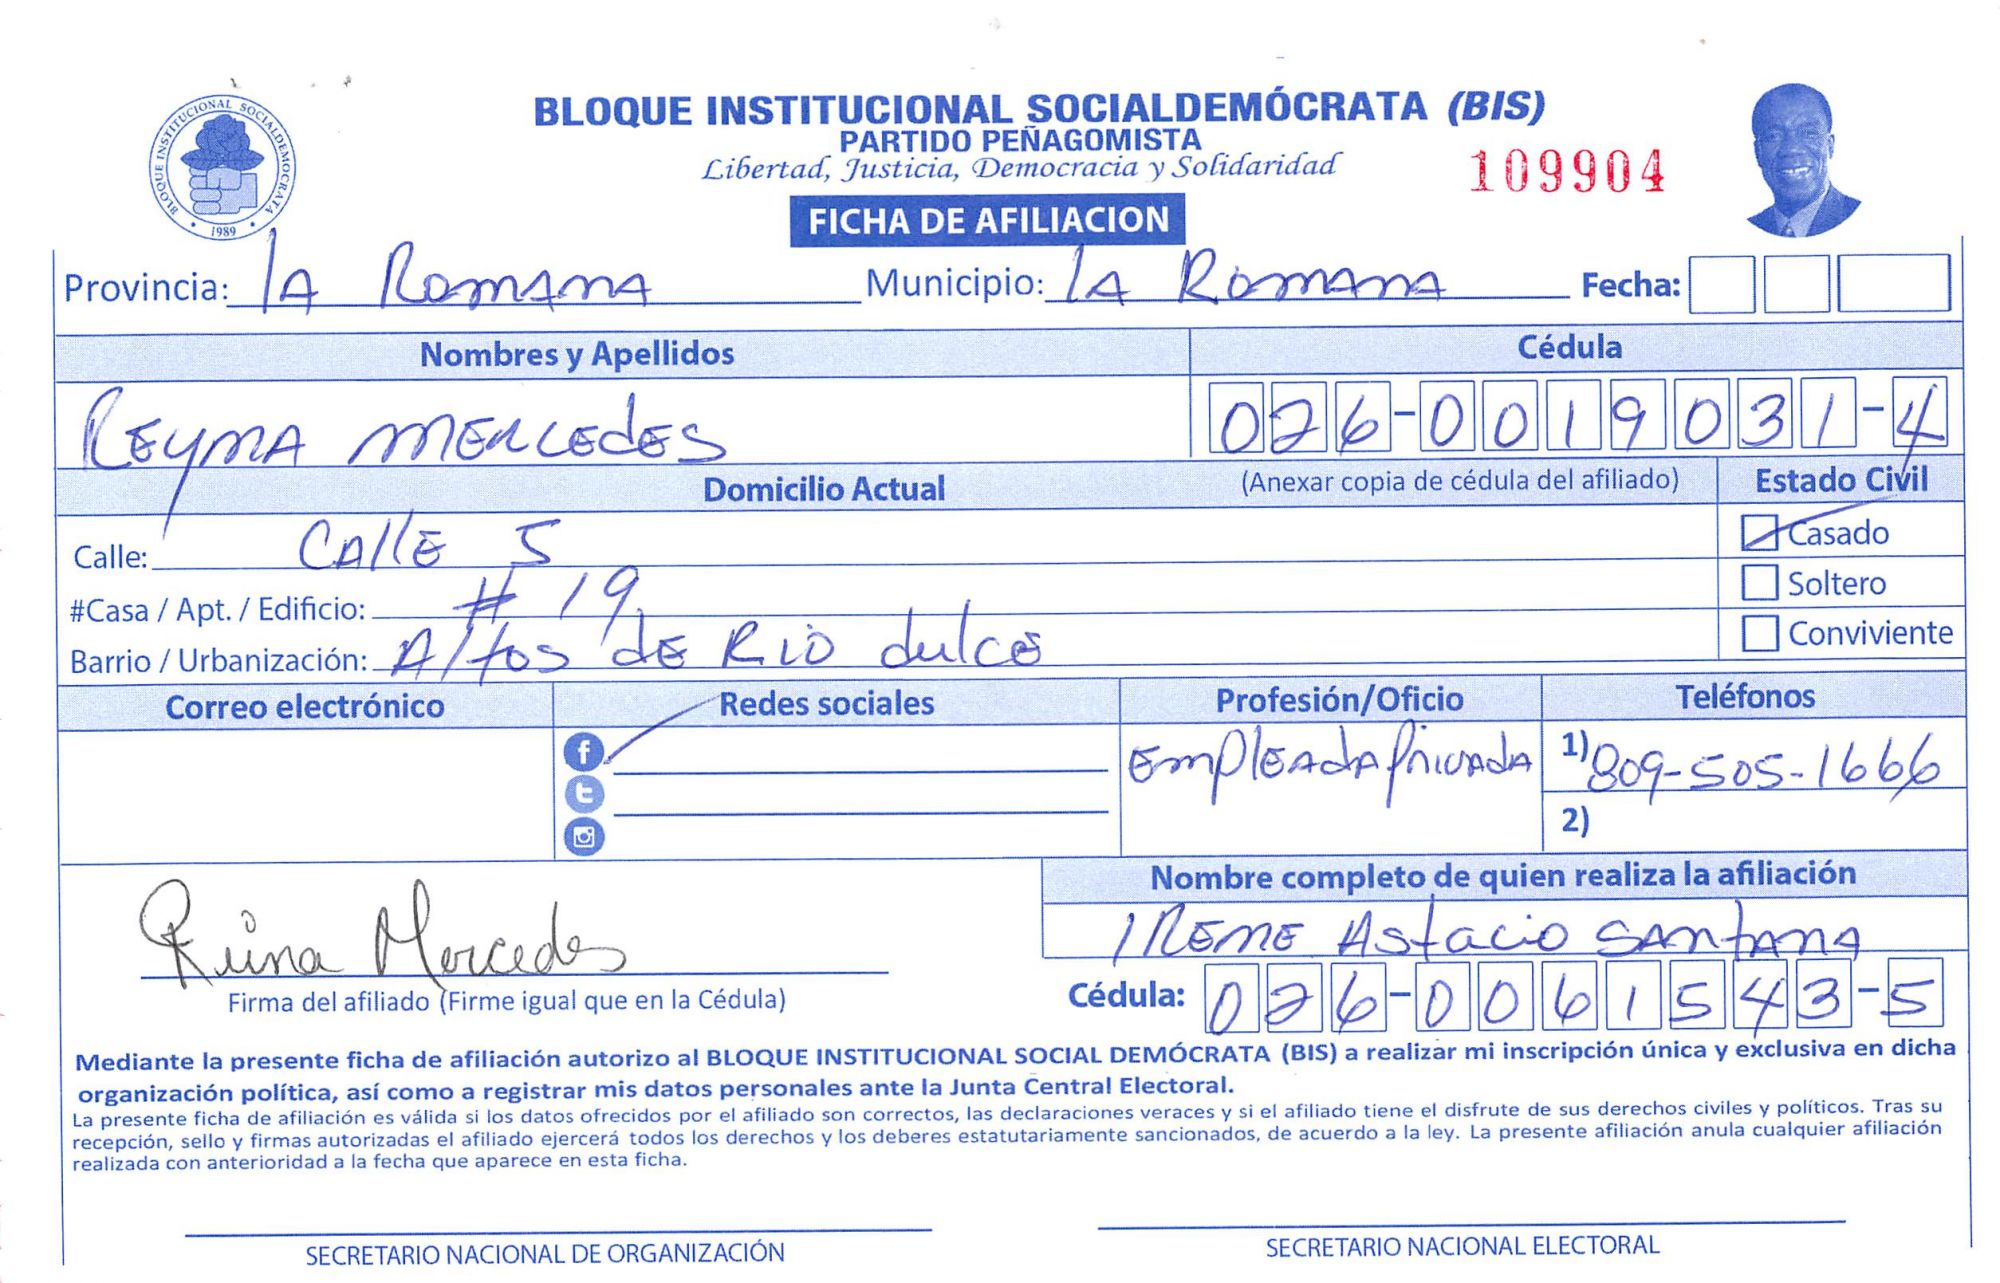 BLOQUE INSTITUCIONAL SOCIALDEMOCRATA
1989
BLOQUE INSTITUCIONAL SOCIALDEMÓCRATA (BIS)
PARTIDO PEÑAGOMISTA
Libertad, Justicia, Democracia y Solidaridad
109904
FICHA DE AFILIACION
Provincia: LA ROMANA Municipio: LA ROMANA Fecha:
Nombres y Apellidos Cédula
REYNA MERCEDES 026-0019031-4
Domicilio Actual (Anexar copia de cédula del afiliado) Estado Civil
Calle: CALLE 5 Casado
#Casa / Apt. / Edificio: # 19 Soltero
Barrio / Urbanización: Altos de Rio dulce Conviviente
Correo electrónico Redes sociales Profesión/Oficio Teléfonos
EmpleAdA privada 1) 809-505-1666
2)
Nombre completo de quien realiza la afiliación
IRENE Astacio SANTANA
Reina Mercedes
Firma del afiliado (Firme igual que en la Cédula) Cédula: 026-0061543-5
Mediante la presente ficha de afiliación autorizo al BLOQUE INSTITUCIONAL SOCIAL DEMÓCRATA (BIS) a realizar mi inscripción única y exclusiva en dicha
organización política, así como a registrar mis datos personales ante la Junta Central Electoral.
La presente ficha de afiliación es válida si los datos ofrecidos por el afiliado son correctos, las declaraciones veraces y si el afiliado tiene el disfrute de sus derechos civiles y políticos. Tras su
recepción, sello y firmas autorizadas el afiliado ejercerá todos los derechos y los deberes estatutariamente sancionados, de acuerdo a la ley. La presente afiliación anula cualquier afiliación
realizada con anterioridad a la fecha que aparece en esta ficha.
SECRETARIO NACIONAL DE ORGANIZACIÓN SECRETARIO NACIONAL ELECTORAL